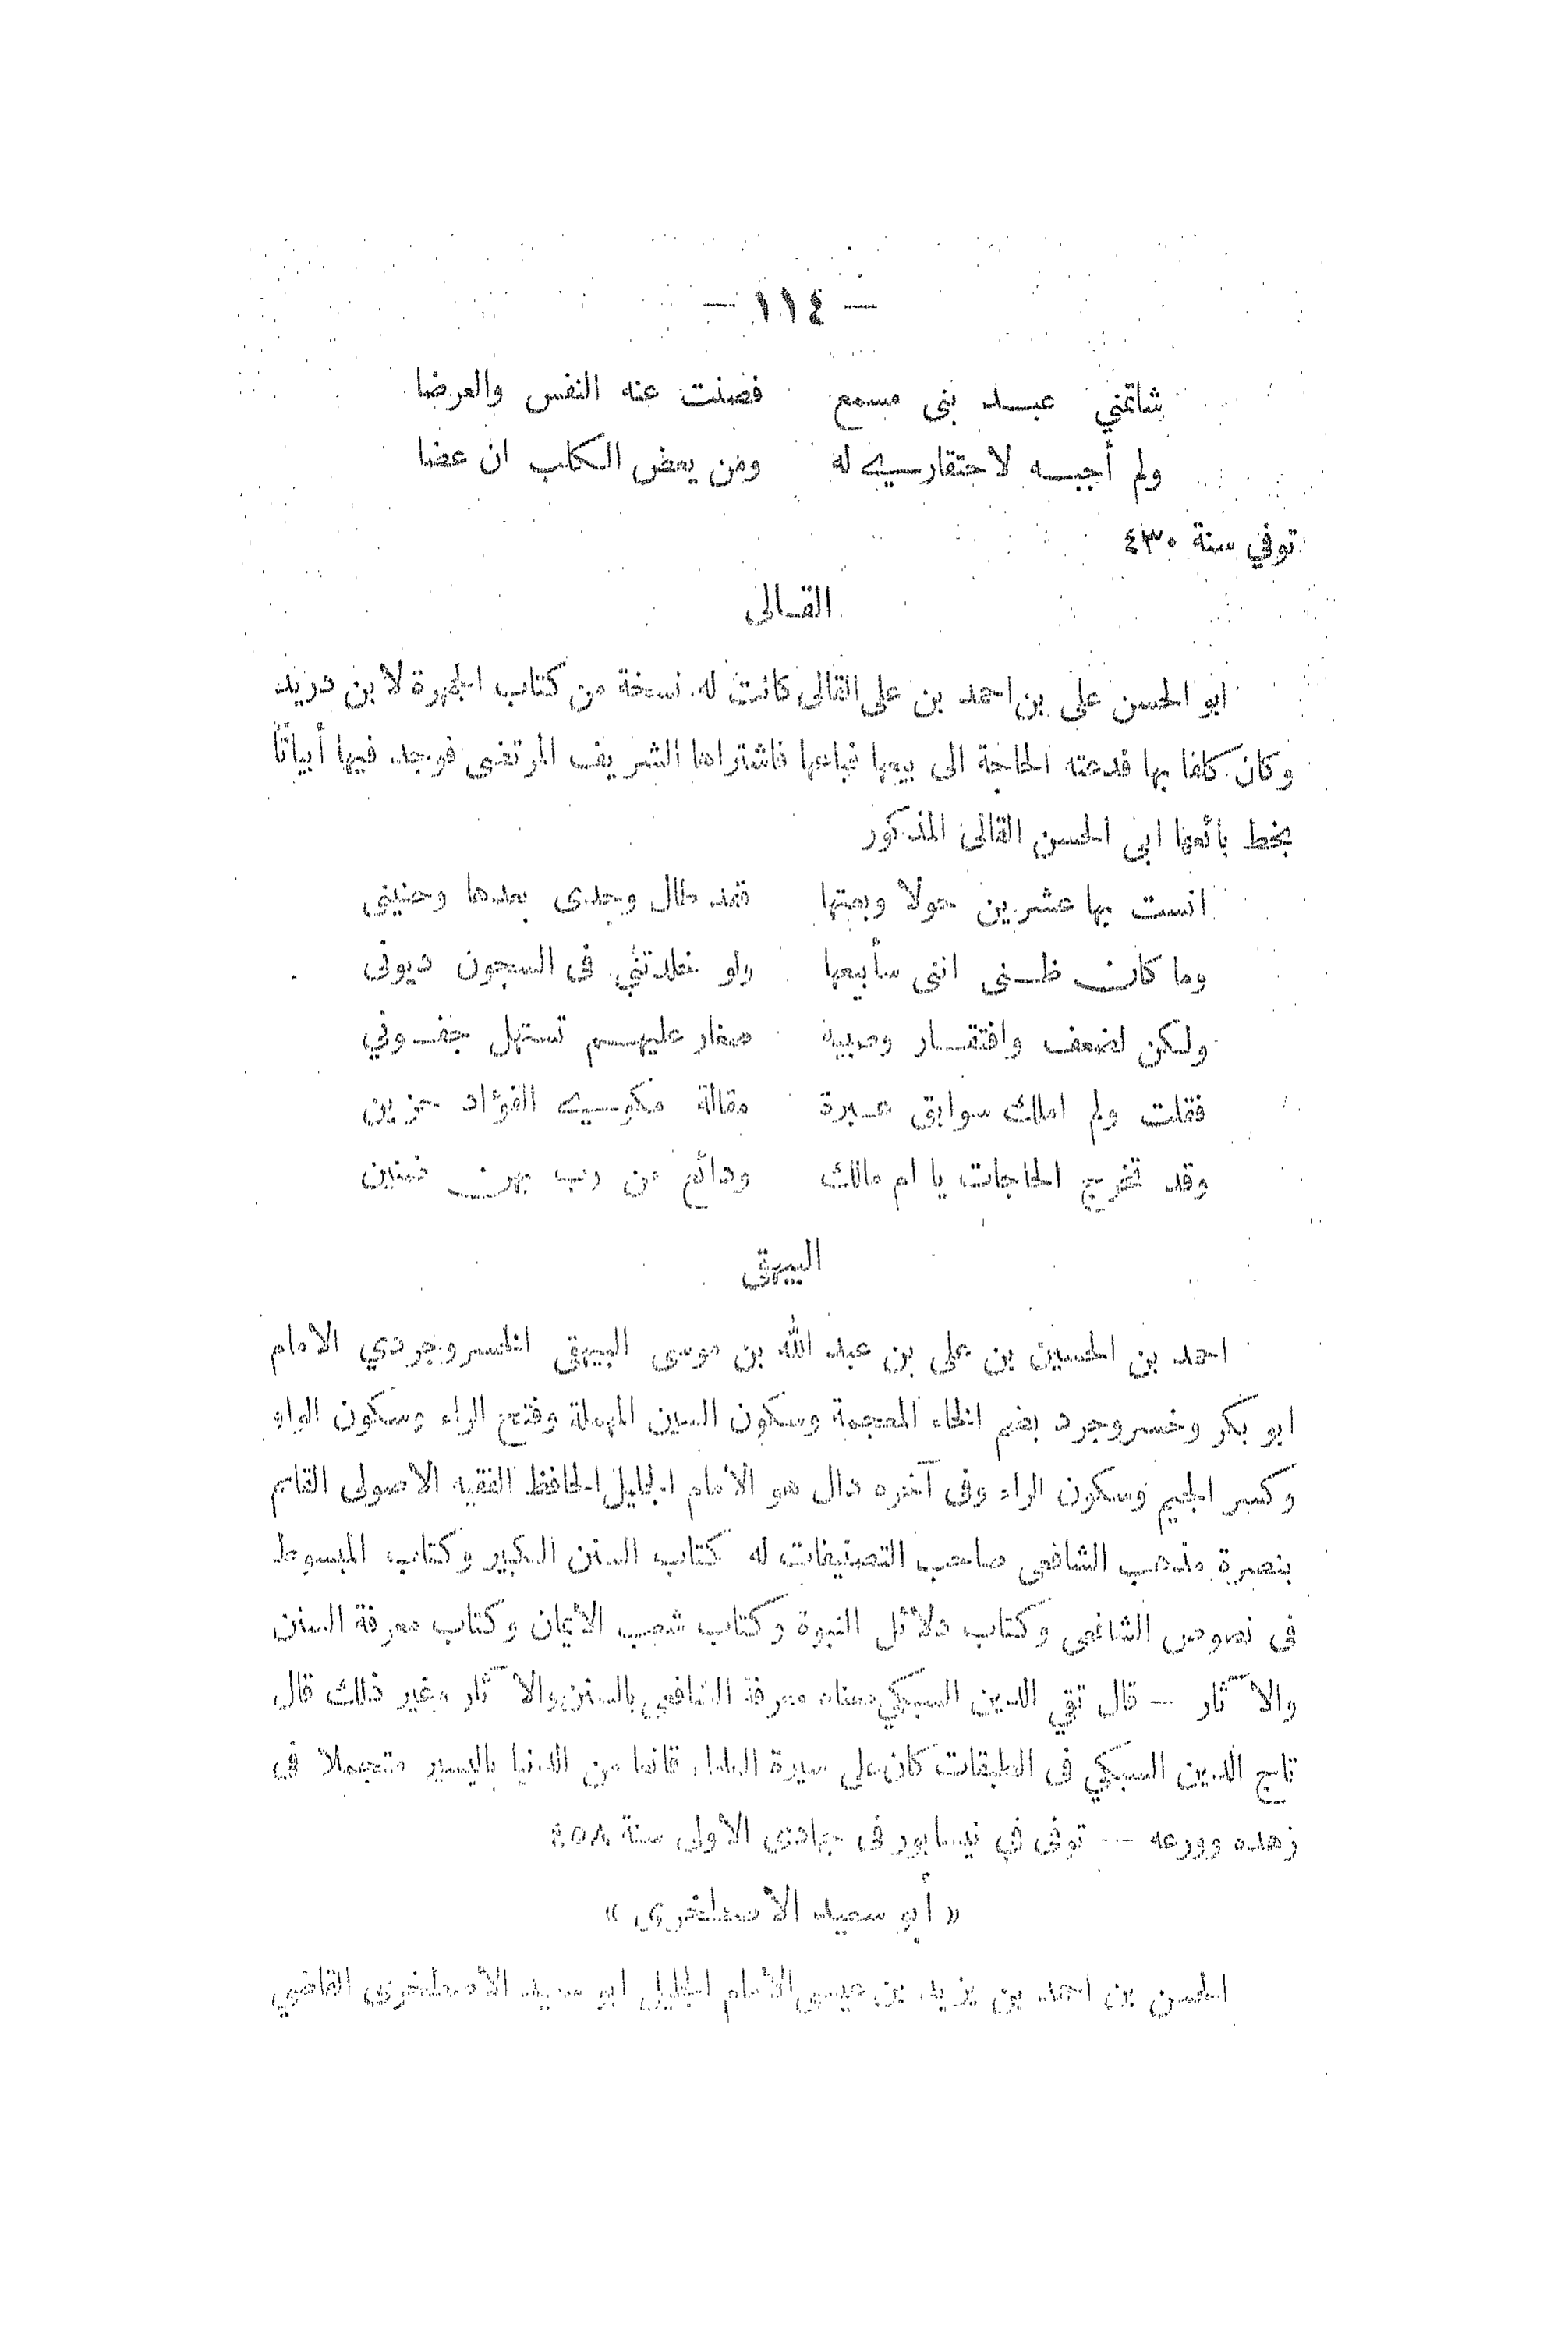 — ١١٤ —
شاتمني عبد بنى مسمع فصنت عنه النفس والعرضا
ولم أجبه لاحتقارى له ومن يعض الكلب ان عضا
توفي سنة ٤٣٠
القالى
ابو الحسن على بن احمد بن على القالى كانت له نسخة من كتاب الجمهرة لابن دريد
وكان كلفا بها فدعته الحاجة الى بيعها فباعها فاشتراها الشريف المرتضى فوجد فيها أبياتاً
بخط بائعها ابى الحسن القالى المذكور
انست بها عشرين حولا وبعتها فقد طال وجدى بعدها وحنينى
وما كان ظنى اننى سأبيعها ولو خلدتني فى السجون ديونى
ولكن لضعف وافتقار وصبية صغار عليهم تستهل جفوني
فقلت ولم املك سوابق عبرة مقالة مكوى الفؤاد حزين
وقد تخرج الحاجات يا ام مالك ودائع من رب بهن ضنين
البيهقى
احمد بن الحسين بن على بن عبد الله بن موسى البيهقى الخسروجردي الامام
ابو بكر وخسروجرد بضم الخاء المعجمة وسكون السين المهملة وفتح الراء وسكون الواو
وكسر الجيم وسكون الراء وفى آخره دال هو الامام الجليل الحافظ الفقيه الاصولى القائم
بنصرة مذهب الشافعى صاحب التصنيفات له كتاب السنن الكبير وكتاب المبسوط
فى نصوص الشافعى وكتاب دلائل النبوة وكتاب شعب الأيمان وكتاب معرفة السنن
والآثار — قال تقي الدين السبكي معناه معرفة الشافعى بالسنن والآثار وغير ذلك قال
تاج الدين السبكي فى الطبقات كان على سيرة العلماء قانعا من الدنيا باليسير متجملا فى
زهده وورعه — توفى في نيسابور فى جمادى الأولى سنة ٤٥٨
« أبو سعيد الأصطخرى »
الحسن بن احمد بن يزيد بن عيسى الأمام الجليل ابو سعيد الأصطخرى القاضي